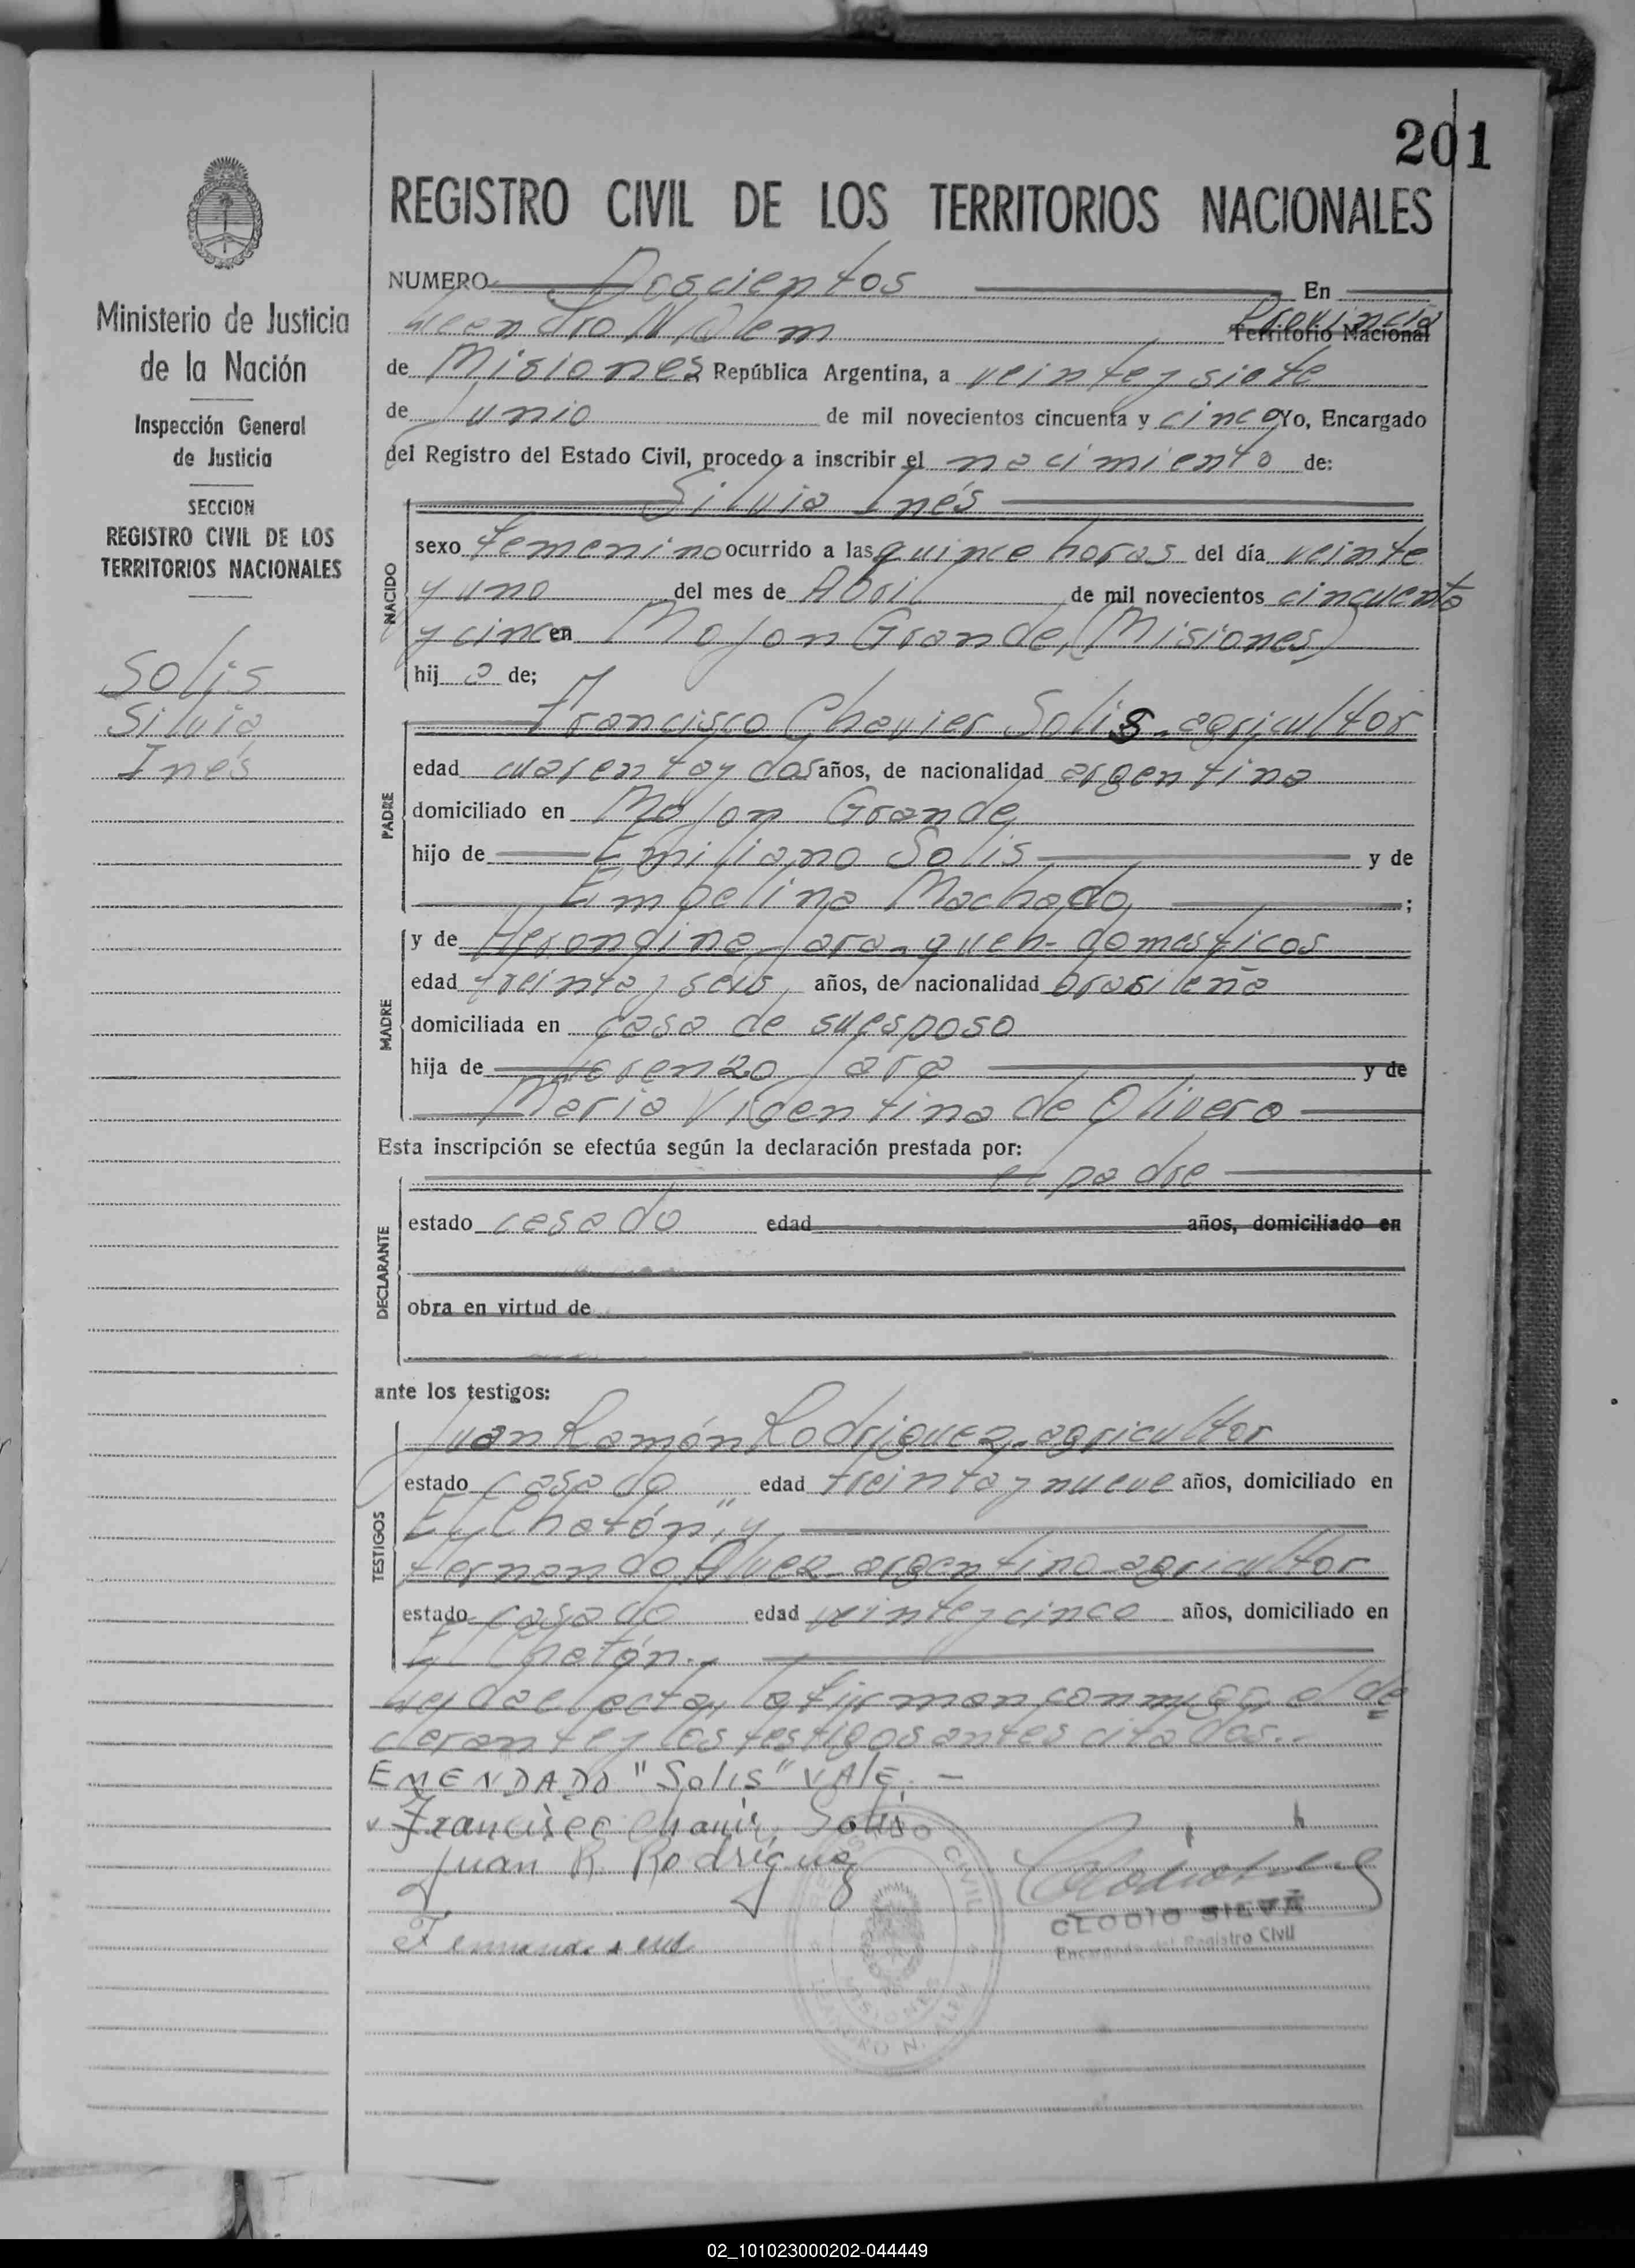 201
REGISTRO CIVIL DE LOS TERRITORIOS NACIONALES
Ministerio de Justicia
de la Nación
Inspección General
de Justicia
SECCION
REGISTRO CIVIL DE LOS
TERRITORIOS NACIONALES
Solis
Silvia
Inés
NUMERO Doscientos En
Leandro N. Alem Provincia Territorio Nacional
de Misiones República Argentina, a veinte y siete
de Junio de mil novecientos cincuenta y cinco Yo, Encargado
del Registro del Estado Civil, procedo a inscribir el nacimiento de:
NACIDO
Silvia Inés
sexo femenino ocurrido a las quince horas del día veinte
y uno del mes de Abril de mil novecientos cincuenta
y cinco en Mojon Grande, (Misiones)
hij a de;
PADRE
Francisco Chavier Solis - agricultor
edad cuarenta y dos años, de nacionalidad argentina
domiciliado en Mojon Grande,
hijo de Emiliano Solis y de
Empelina Machado, ;
MADRE
y de Jara - queh- domesticos
edad treinta y seis, años, de nacionalidad brasileña
domiciliada en casa de su esposo
hija de Lorenzo Jara y de
Maria de Olivera
Esta inscripción se efectúa según la declaración prestada por:
DECLARANTE
el padre
estado casado edad años, domiciliado en
obra en virtud de
ante los testigos:
TESTIGOS
Juan Ramón Rodriguez - agricultor
estado casado edad treinta y nueve años, domiciliado en
El Chatón," y
Fernando Alvez - argentino - agricultor
estado casado edad veinte y cinco años, domiciliado en
El Chatón.-
Leida el acta, la firman conmigo, el de
clarante y los testigos antes citados.-
EMENDADO "Solis" VALE. -
Francisco Chavier Solis
Juan R. Rodriguez
REGISTRO CIVIL
MISIONES
LEANDRO N. ALEM
CLODIO SILVA
Encargado del Registro Civil
02_101023000202-044449